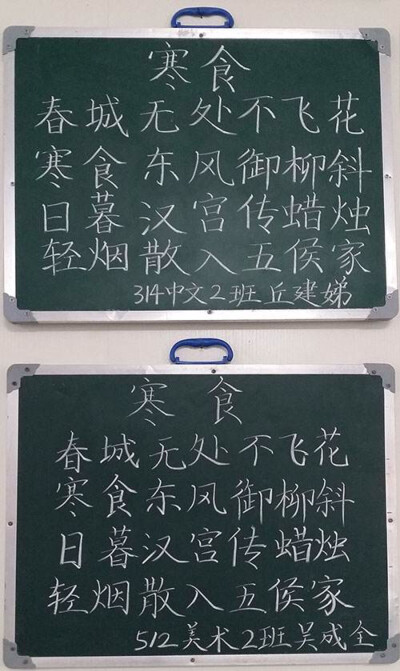 寒食
春城无处不飞花
寒食东风御柳斜
日暮汉宫传蜡烛
轻烟散入五侯家
314中文2班丘建娣
寒食
春城无处不飞花
寒食东风御柳斜
日暮汉宫传蜡烛
轻烟散入五侯家
512美术2班吴成全